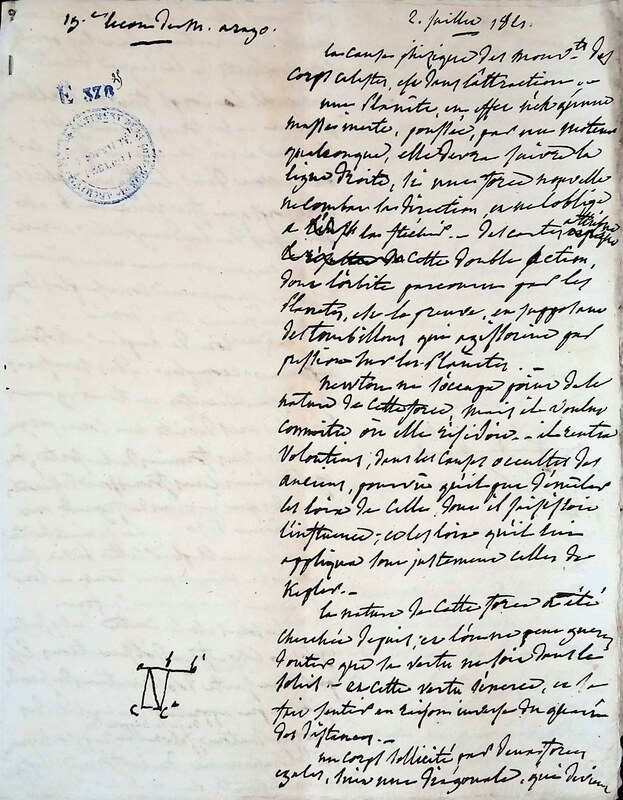 19.e leçon de M. arago.
2. juillet 1821.
E 378
la cause phisique des mouv.ts des
corps celestes, est dans l'attraction
une Planète, en effet n'est qu'une
masse inerte, poussée, par un moteur
quelconque, elle devra suivre la
ligne droite, si une force nouvelle
ne combat la direction, et ne l'oblige
a la flechir. - descartes attribue
cette double action,
dont l'orbite parcourue par les
Planetes, est la preuve, en supposant
des tourbillons qui agissoient par
pression sur les Planètes.
newton ne s'occupa point de la
nature de cette force, mais il voulut
connoitre où elle résidoit. - il rentra
volontiers, dans les causes occultes des
anciens, pourvu qu'il put dévoiler
les loix de celle dont il saisissoit
l'influence; et les loix qu'il lui
appliqua sont justement celles de
Kepler. -
la nature de cette force a été
cherchée depuis, et l'on ne peut guere
douter que la vertu ne soit dans le
soleil - et cette vertu s'exerce, et se
fait sentir en raison inverse du quarré
des distances. -
un corps sollicité par deux forces
egales, suit une diagonale, qui divise
a b b'
c c'